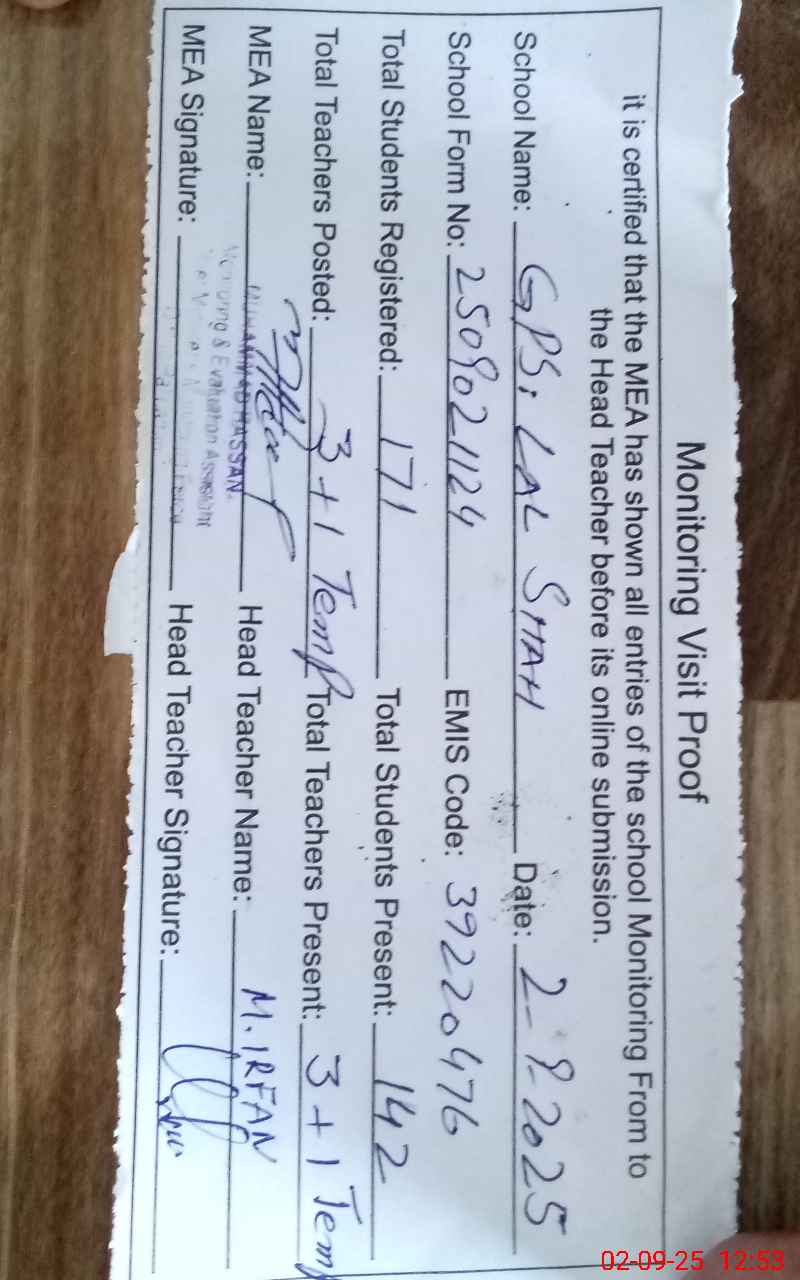 Monitoring Visit Proof
it is certified that the MEA has shown all entries of the school Monitoring From to
the Head Teacher before its online submission.
School Name: GPS: LAL SHAH Date: 2-9-2025
School Form No: 2509021124 EMIS Code: 39220476
Total Students Registered: 171 Total Students Present: 142
Total Teachers Posted: 3+1 Temp Total Teachers Present: 3+1 Temp
MEA Name: MUHAMMAD HASSAN Head Teacher Name: M. IRFAN
Monitoring & Evaluation Assistant
MEA Signature: Head Teacher Signature:
02-09-25 12:53